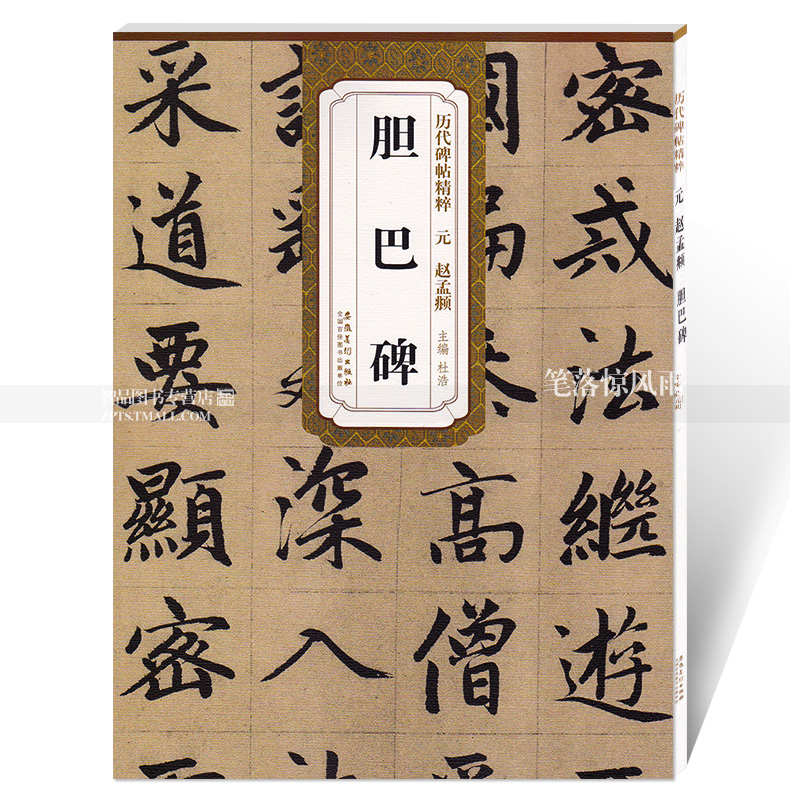 历代碑帖精粹 元 赵孟頫
胆巴碑
主编 杜浩
安徽美术出版社
全国百佳图书出版单位
密戒法繼遊
高僧
深入
采道要顯密
历代碑帖精粹 元 赵孟頫 胆巴碑
安徽美术出版社
智品图书专营店
ZPTS.TMALL.COM
笔落惊风雨